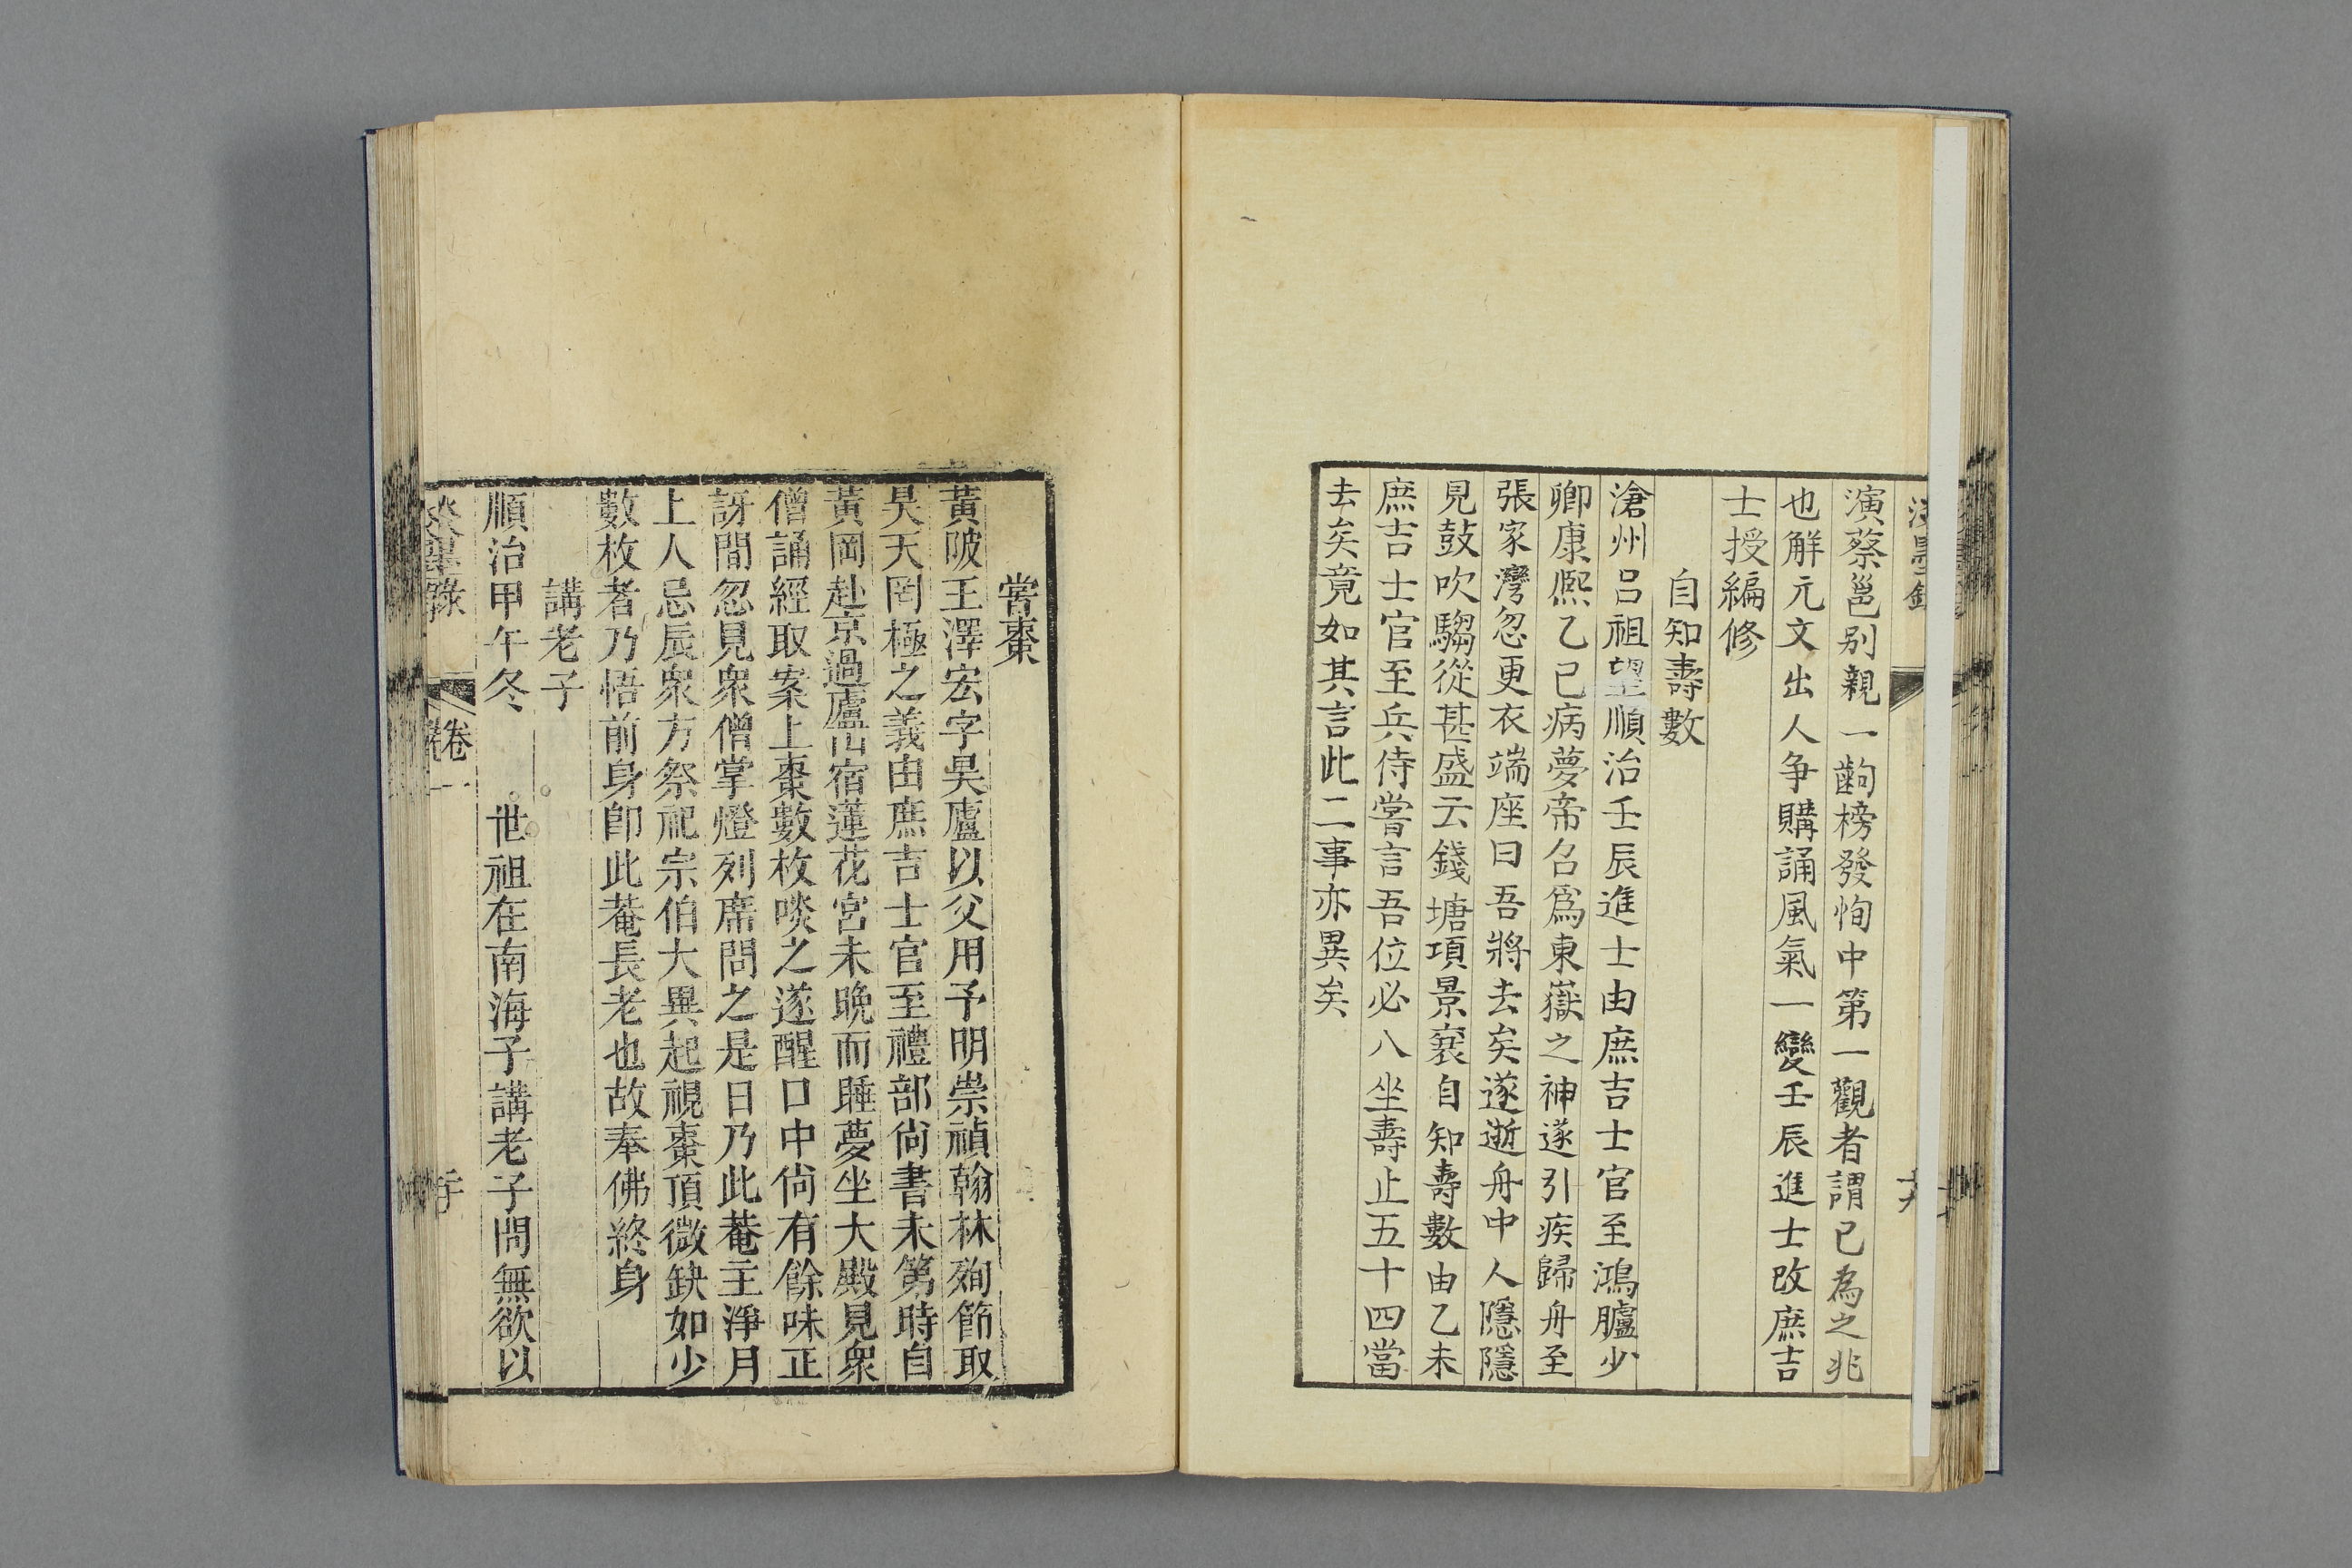 演蔡邕别親一齣榜發恂中第一觀者謂已為之兆
也解元文出人争購誦風氣一變壬辰進士改庶吉
士授編修
自知壽數
滄州呂祖望順治壬辰進士由庶吉士官至鴻臚少
卿康熙乙巳病夢帝召爲東嶽之神遂引疾歸舟至
張家灣忽更衣端座曰吾將去矣遂逝舟中人隱隱
見鼓吹騶從甚盛云錢塘項景襄自知壽數由乙未
庶吉士官至兵侍嘗言吾位必八坐壽止五十四當
去矣竟如其言此二事亦異矣
嘗棗
黃陂王澤宏字昊廬以父用予明崇禎翰林殉節取
昊天罔極之義由庶吉士官至禮部尙書未第時自
黃岡赴京過廬山宿蓮花宮未晚而睡夢坐大殿見衆
僧誦經取案上棗數枚啖之遂醒口中尙有餘味正
訝間忽見衆僧掌燈列席問之是日乃此菴主淨月
上人忌辰衆方祭祀宗伯大異起視棗頂微缺如少
數枚者乃悟前身卽此菴長老也故奉佛終身
講老子
順治甲午冬 世祖在南海子講老子問無欲以
卷一